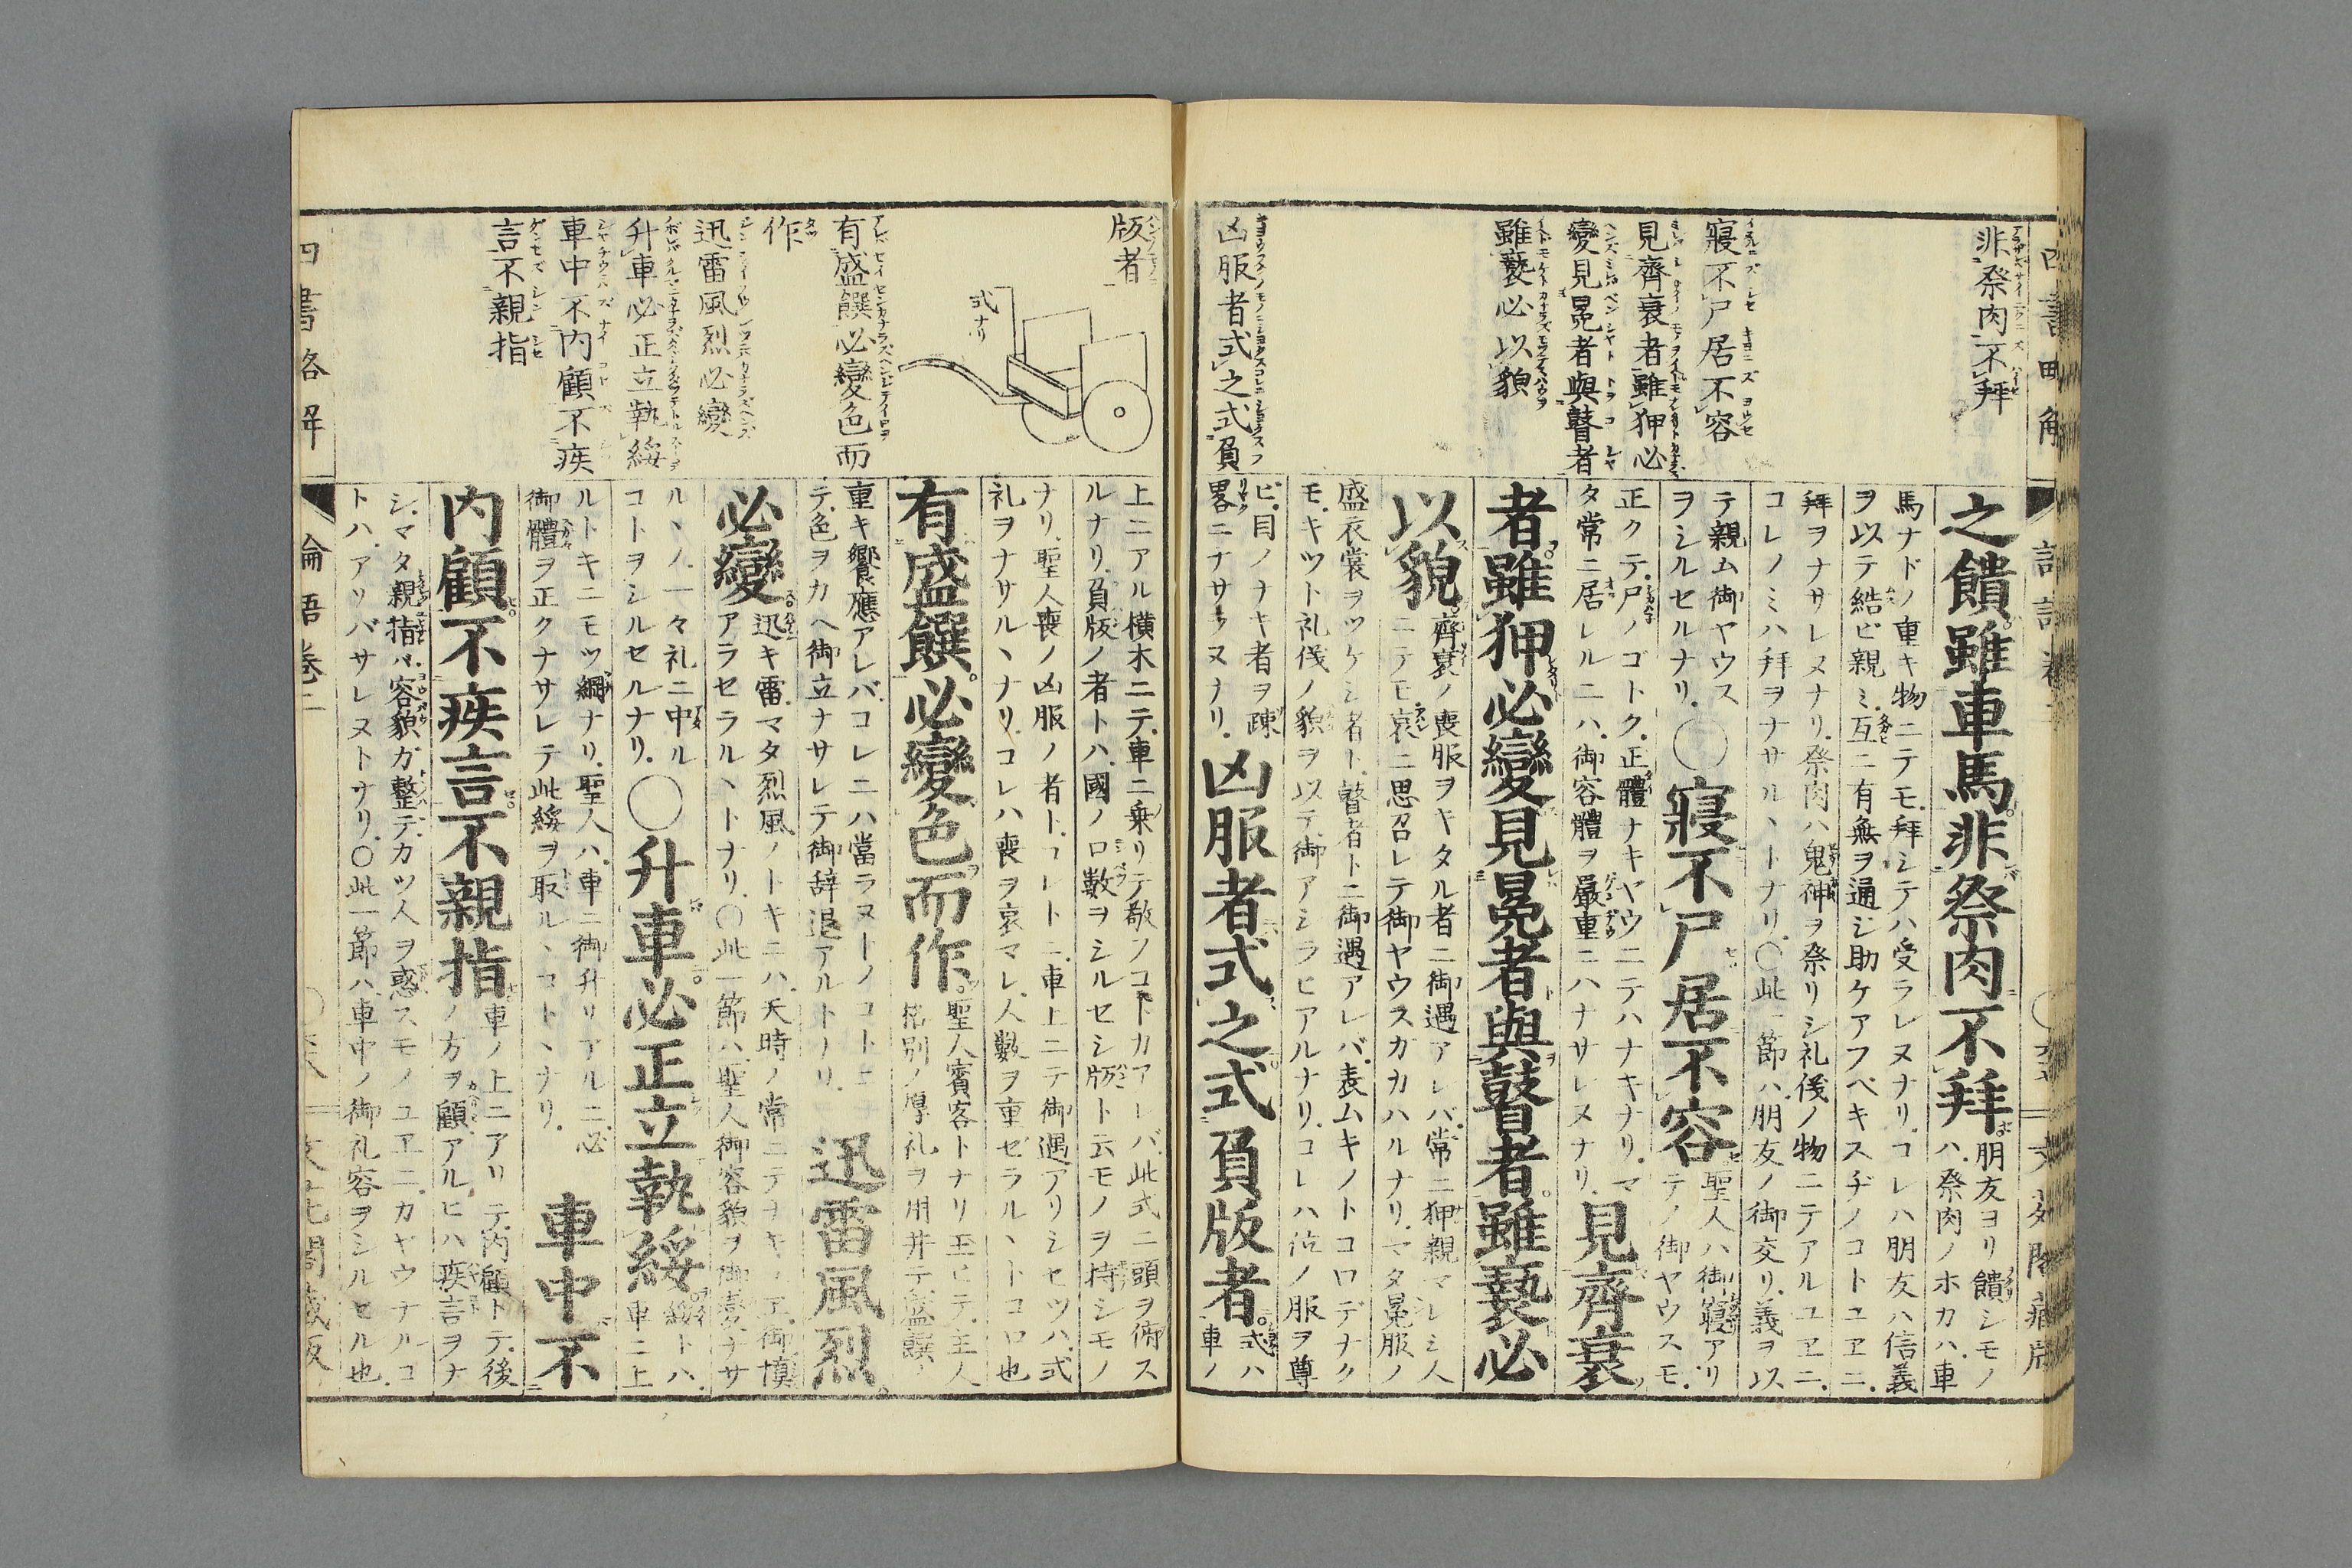 四書略解
論語卷二
非祭肉不拜
寢不尸居不容
見齊衰者雖狎必
變見冕者與瞽者
雖褻必以貌
凶服者式之式負
之饋雖車馬非祭肉不拜
朋友ヨリ饋シモノ
ハ祭肉ノホカハ車
馬ナドノ重キ物ニテモ拜シテハ受ラレヌナリコレハ朋友ハ信義
ヲ以テ結ビ親ミ互ニ有無ヲ通シ助ケアフベキスヂノコトユヱニ
拜ヲナサレヌナリ祭肉ハ鬼神ヲ祭リシ礼儀ノ物ニテアルユヱニ
コレノミハ拜ヲナサルヽトナリ〇此一節ハ朋友ノ御交リ義ヲ以
テ親ム御ヤウス
ヲシルセルナリ
〇寢不尸居不容
聖人ハ御寢アリ
テノ御ヤウスモ
正クテ尸ノゴトク正體ナキヤウニテハナキナリマ
タ常ニ居レルニハ御容體ヲ嚴重ニハナサレヌナリ
見齊衰
者雖狎必變見冕者與瞽者雖褻必
以貌
齊衰ノ喪服ヲキタル者ニ御遇アレバ常ニ狎親マレシ人
ニテモ哀ニ思召レテ御ヤウスカカハルナリマタ冕服ノ
盛衣裳ヲツケシ者ト瞽者トニ御遇アレバ表ムキノトコロデナク
モキツト礼儀ノ貌ヲ以テ御アシラヒアルナリコレハ位ノ服ヲ尊
ビ目ノナキ者ヲ疎
畧ニナサヌナリ
凶服者式之式負版者
式ハ
車ノ
版者
式ナリ
有盛饌必變色而
作
迅雷風烈必變
升車必正立執綏
車中不内顧不疾
言不親指
上ニアル横木ニテ車ニ乗リテ敬ノコトカアレバ此式ニ頭ヲ俯ス
ルナリ負版ノ者トハ國ノ口數ヲシルセシ版ト云モノヲ持シモノ
ナリ聖人喪ノ凶服ノ者トコレトニ車上ニテ御遇アリシセツハ式
礼ヲナサルヽナリコレハ喪ヲ哀マレ人數ヲ重ゼラルヽトコロ也
有盛饌必變色而作
聖人賓客トナリ玉ヒテ主人
格別ノ厚礼ヲ用井テ盛饌ノ
重キ饗應アレバコレニハ當ラヌトノコトニ
テ色ヲカヘ御立ナサレテ御辞退アルトナリ
迅雷風烈
必變
迅キ雷マタ烈風ノトキニハ天時ノ常ニテナキユヱ御慎
アラセラルヽトナリ〇此一節ハ聖人御容貌ヲ御變ナサ
ルヽノ一々礼ニ中ル
コトヲシルセルナリ
〇升車必正立執綏
綏トハ
車ニ上
ルトキニモツ綱ナリ聖人ハ車ニ御升リアルニ必
御體ヲ正クナサレテ此綏ヲ取ルヽコトヽナリ
車中不
内顧不疾言不親指
車ノ上ニアリテ内顧トテ後
ノ方ヲ顧アルヒハ疾言ヲナ
シマタ親指バ容貌ガ整デカツ人ヲ惑スモノユヱニカヤウナルコ
トハアソバサレヌトナリ〇此一節ハ車中ノ御礼容ヲシルセル也
四書略解
論語卷二
文花閣藏版